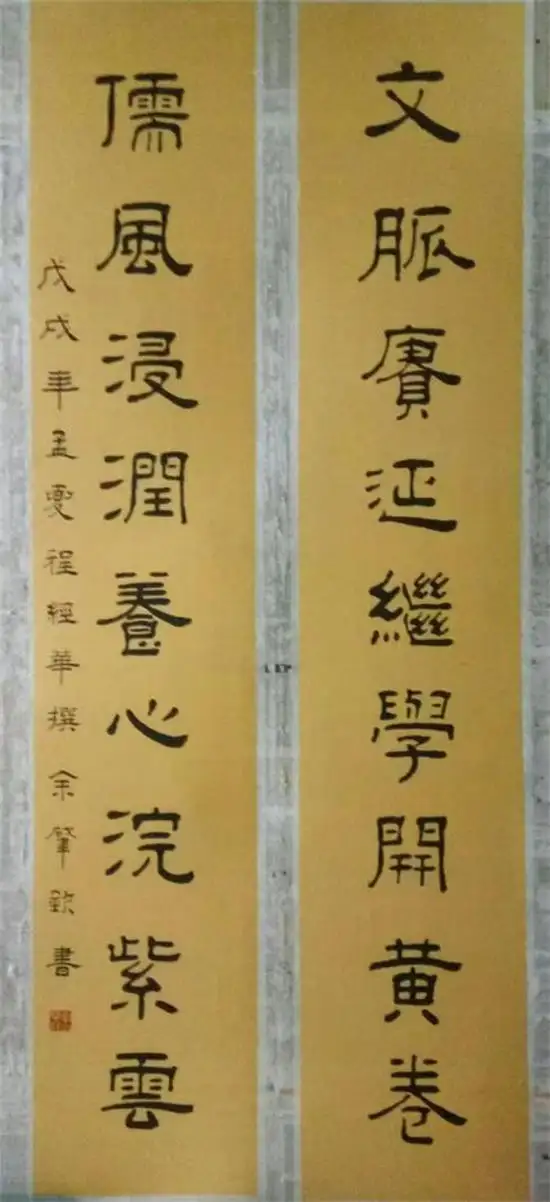 文脈賡延繼學開黃卷
儒風浸潤養心浣紫雲
戊戌年孟夏程經華撰余肇欽書